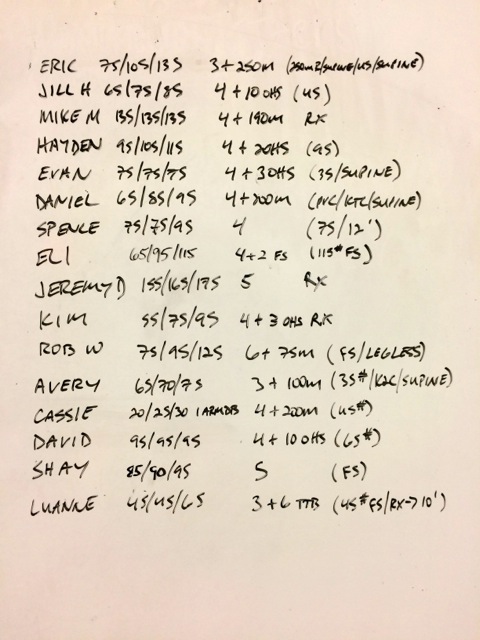 ERIC 75/105/135 3+250m (250m R/SUPINE/45/SUPINE)
JILL H 65/75/85 4+10 OHS (45)
MIKE M 135/135/135 4+190m RX
HAYDEN 95/105/115 4+20HS (95)
EVAN 75/75/75 4+3 OHS (35/SUPINE)
DANIEL 65/85/95 4+200m (PVC/KTC/SUPINE)
SPENCE 75/75/95 4 (75/12')
ELI 65/95/115 4+2 FS (115# FS)
JEREMY D 155/165/175 5 RX
KIM 55/75/95 4+3 OHS RX
ROB W 75/95/125 6+75m (FS/LEGLESS)
AVERY 65/70/75 3+100m (35#/K2C/SUPINE)
CASSIE 20/25/30 1 ARM DB 4+200m (45#)
DAVID 95/95/95 4+10 OHS (65#)
SHAY 85/90/95 5 (FS)
LUANNE 45/45/65 3+6 TTB (45# FS/RX->10')